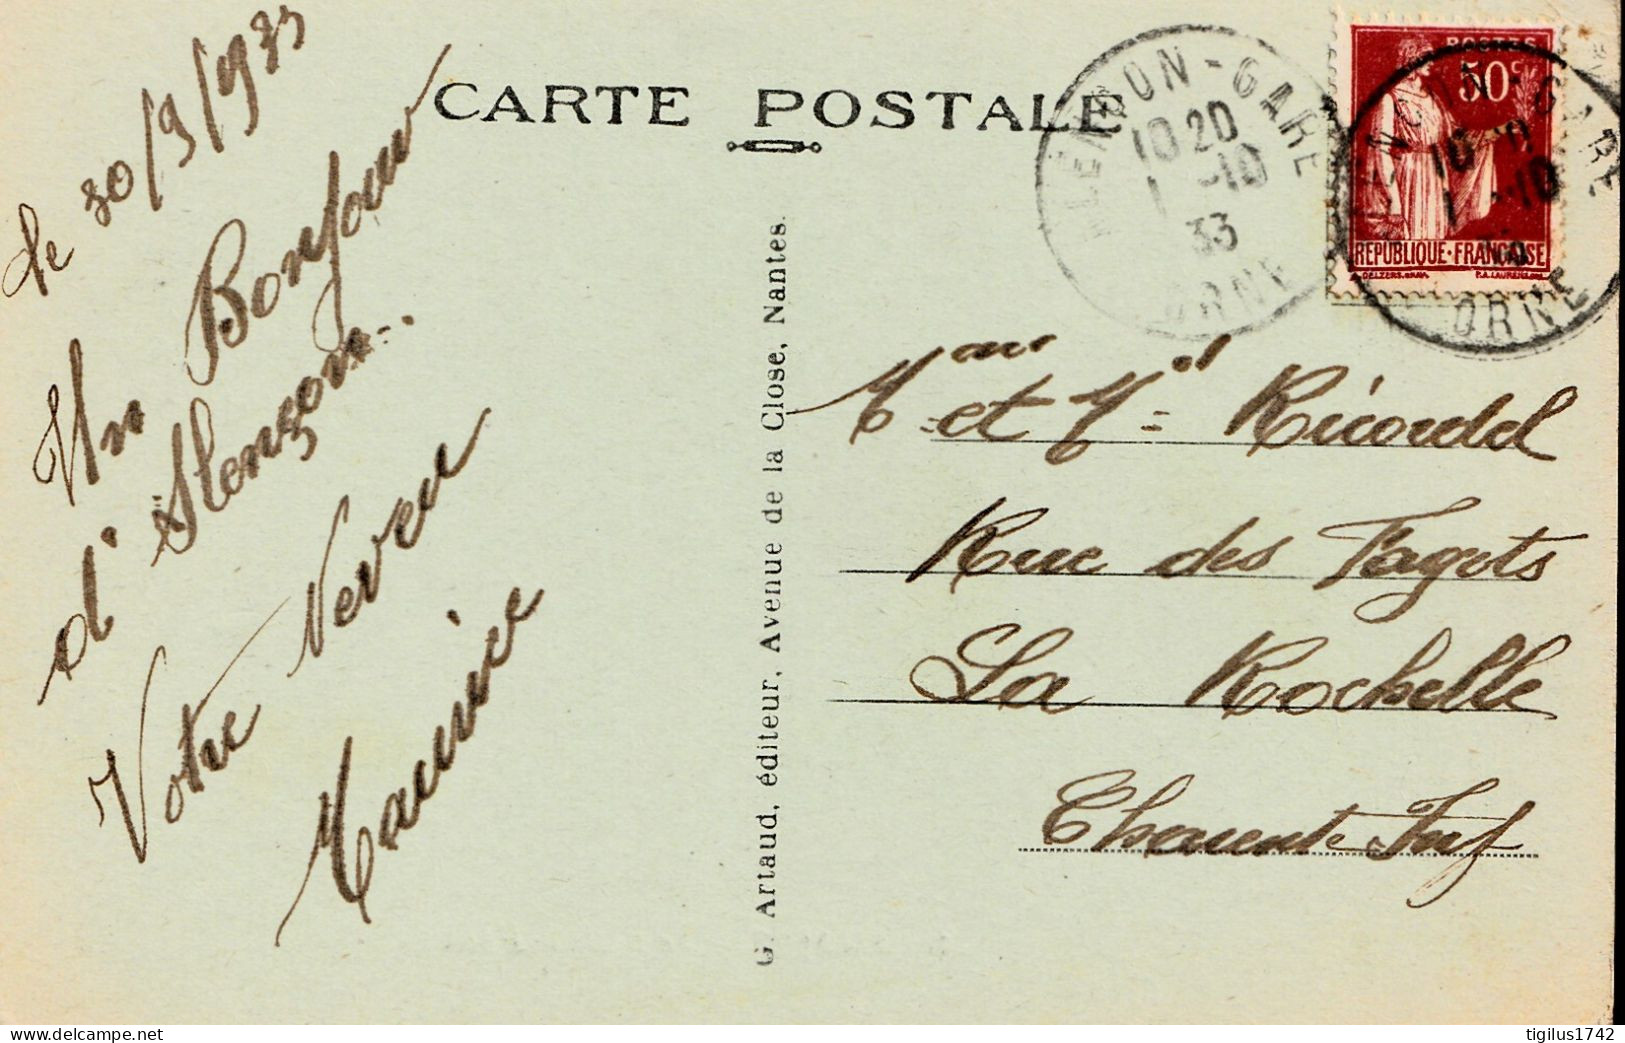 CARTE POSTALE
le 30/9/933
Un Bonjour
d'Alençon.
Votre Neveu
Maurice
G. Artaud, éditeur, Avenue de la Close, Nantes.
ALENÇON-GARE
10 20
1 -10
33
ORNE
POSTES
50c
REPUBLIQUE·FRANÇAISE
ALENÇON-GARE
1 -10
ORNE
Mme et Mr Ricordel
Rue des Fagots
La Rochelle
Charente Inf
tigilus1742